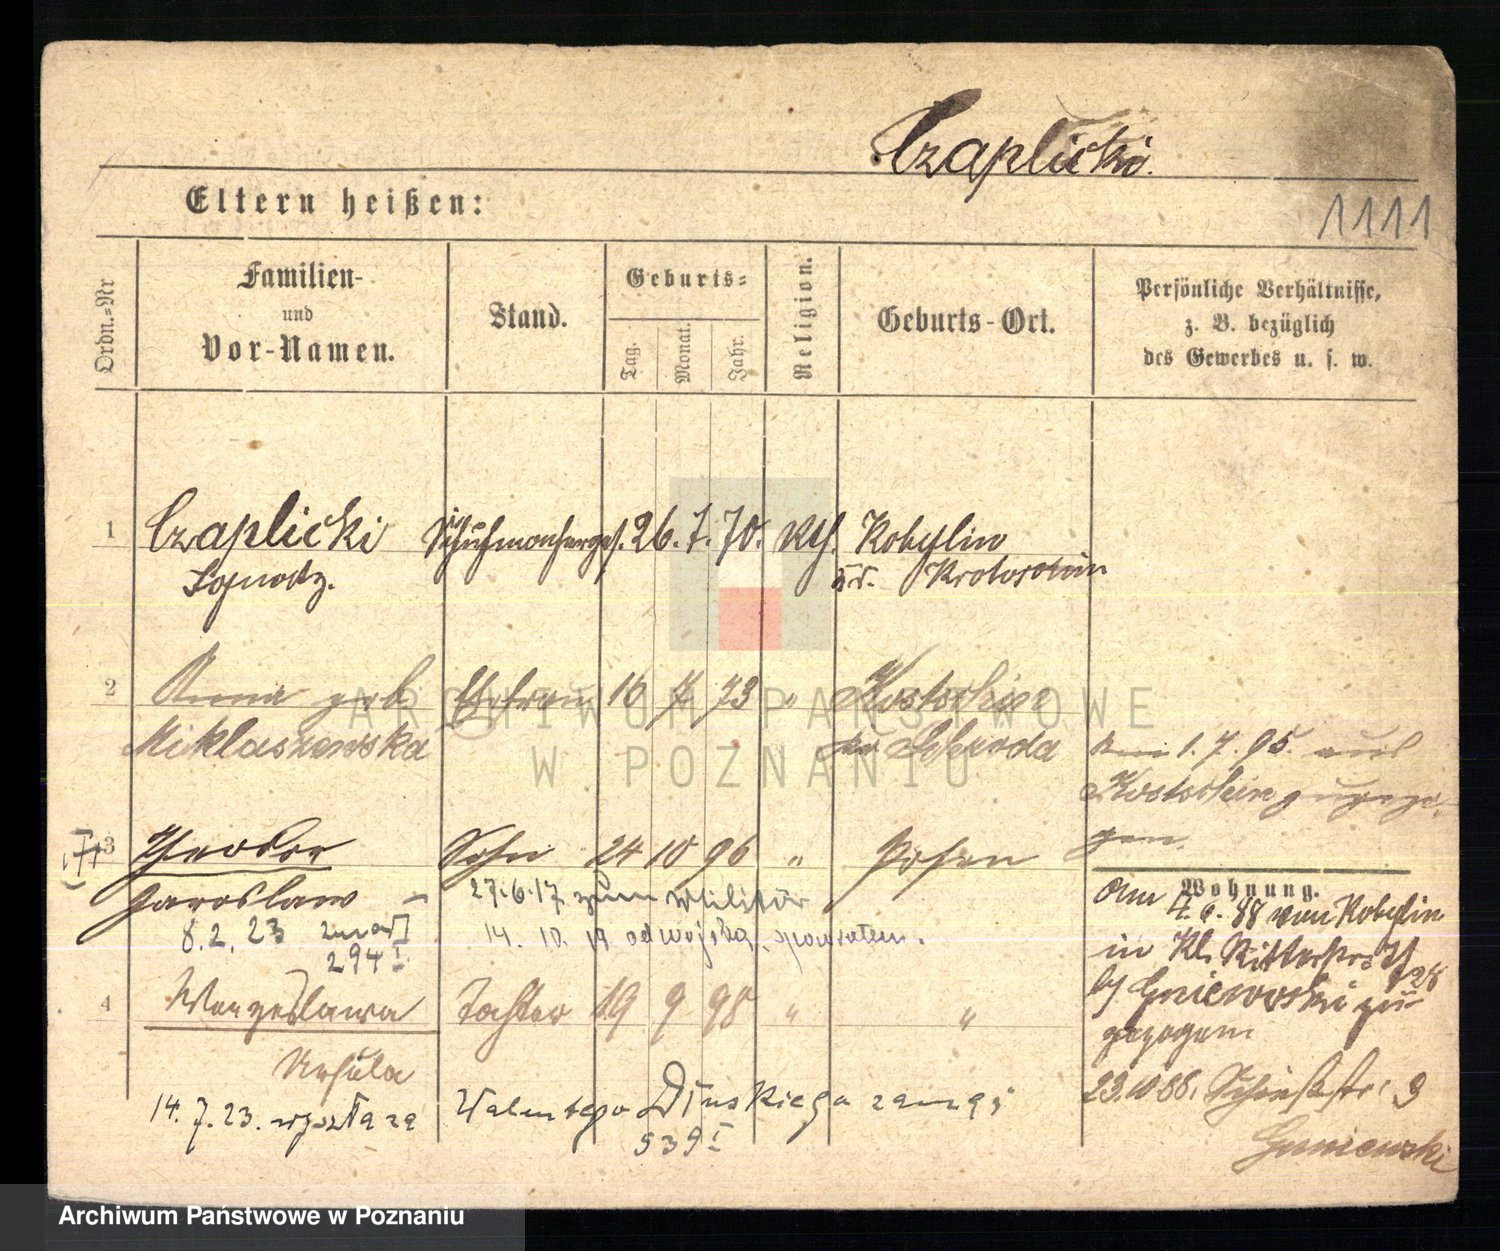 Czaplicki.
Eltern heißen:
1111
Ordn.=Nr
Familien-
und
Vor-Namen.
Stand.
Geburts=
Tag.
Monat.
Jahr.
Religion.
Geburts-Ort.
Persönliche Verhältnisse,
z. B. bezüglich
des Gewerbes u. s. w.
1 Czaplicki Schuhmacherges. 26. 7. 70. kth. Kobylin
Ignatz. Kr. Krotoschin
2 Anna geb Ehefrau 16 7 73 " Kostschin
Miklaszewska Kr Schroda
Am 1. 7. 95. aus
Kostschin zugezo-
gen.
3 Theodor Sohn 24 10 96 " Posen
Jaroslaw 27.6.17 zum Militär
8. 2. 23 14. 10. 19 od wojska
294 I
4 Tochter 19 9 98 " "
Ursula
14. 7. 23. wyszła za Walentego Dłuskiego
539 I
Wohnung.
Am 88 von Kobylin
in Kl. Ritterstr. 
b/ Gniewoski zu-
gezogen
23.10 88. Schießstr. 9
Gniewoski
ARCHIWUM PAŃSTWOWE
W POZNANIU
Archiwum Państwowe w Poznaniu